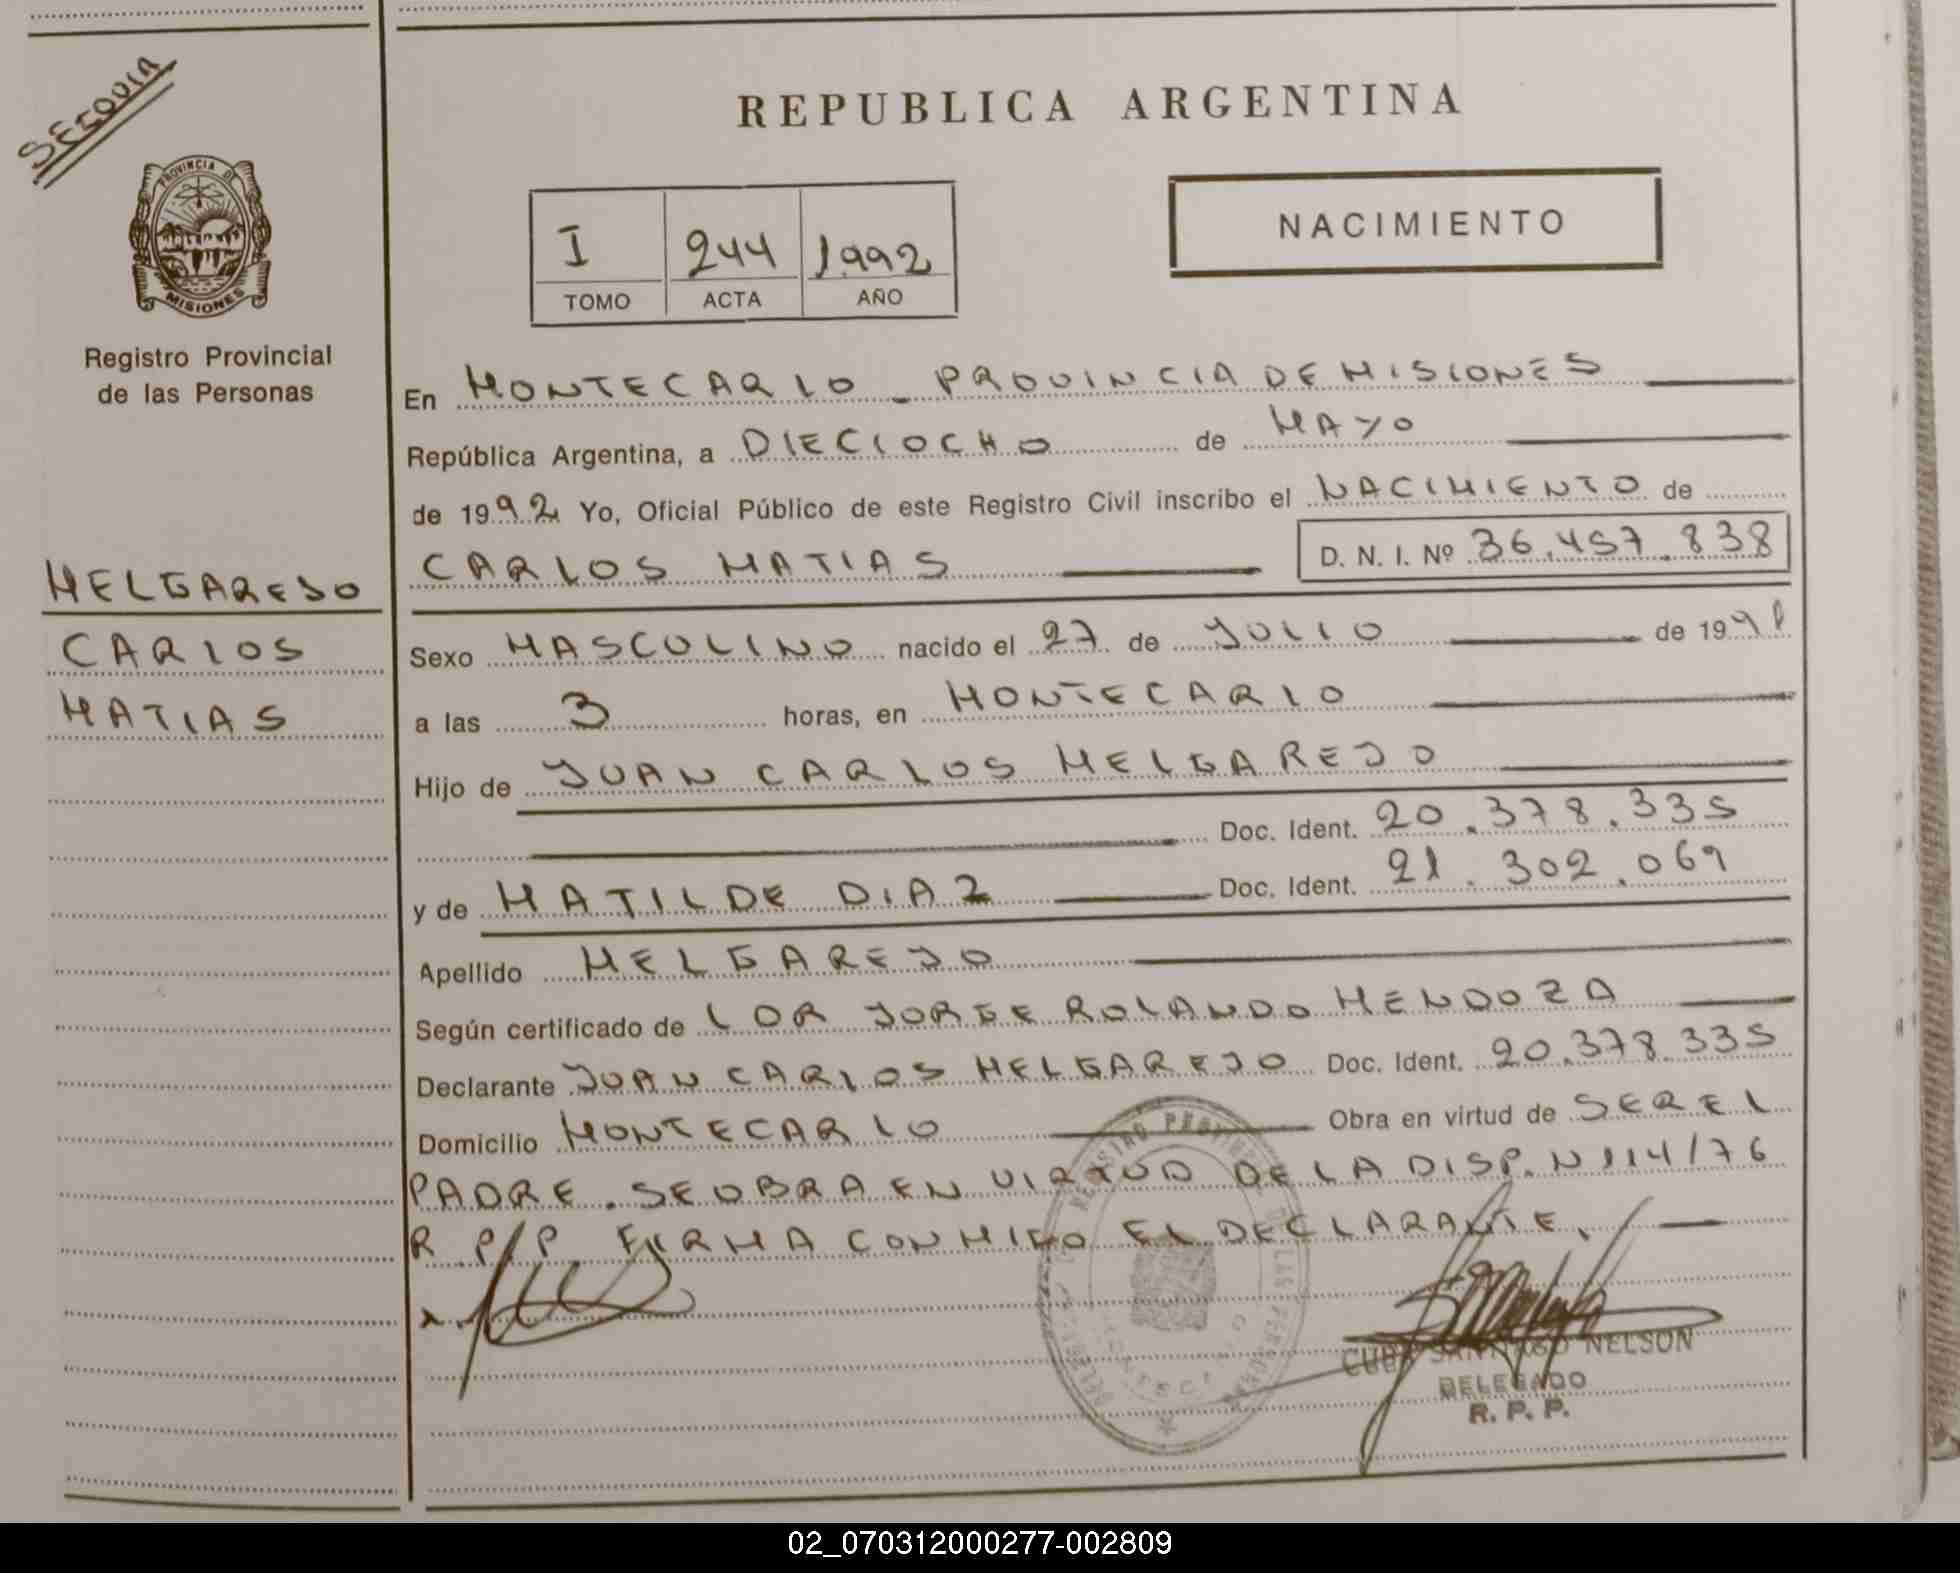 SEGOVIA
PROVINCIA DE
MISIONES
Registro Provincial
de las Personas
MELGAREJO
CARLOS
MATIAS
REPUBLICA ARGENTINA
I 244 1992
TOMO ACTA AÑO
NACIMIENTO
En MONTECARLO _ PROVINCIA DE MISIONES
República Argentina, a DIECIOCHO de MAYO
de 1992 Yo, Oficial Público de este Registro Civil inscribo el NACIMIENTO de
CARLOS MATIAS D. N. I. Nº 36.457.838
Sexo MASCULINO nacido el 27 de JULIO de 1991
a las 3 horas, en MONTECARLO
Hijo de JUAN CARLOS MELGAREJO
Doc. Ident. 20.378.335
y de MATILDE DIAZ Doc. Ident. 21.302.069
Apellido MELGAREJO
Según certificado de LOR JORGE ROLANDO MENDOZA
Declarante JUAN CARLOS MELGAREJO Doc. Ident. 20.378.335
Domicilio MONTECARLO Obra en virtud de SER EL
PADRE. SE OBRA EN VIRTUD DE LA DISP. N 114/76
R.P.P. FIRMA CONMIGO EL DECLARANTE.
SANTIAGO NELSON
DELEGADO
R. P. P.
02_070312000277-002809